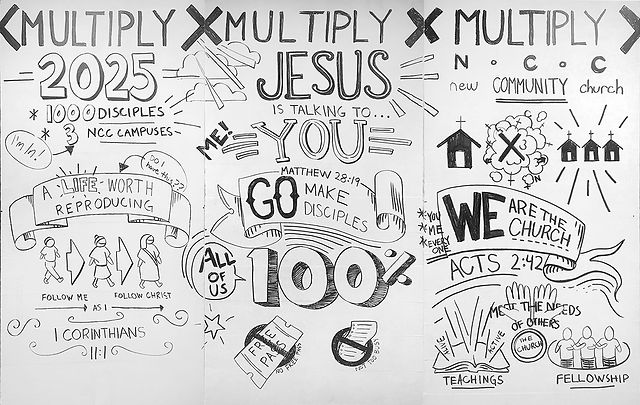 MULTIPLY
2025
* 1000 DISCIPLES
* 3 NCC CAMPUSES
I'm In!
Do I have this??
A LIFE WORTH
REPRODUCING
FOLLOW ME
AS I
FOLLOW CHRIST
1 CORINTHIANS
11:1
MULTIPLY
JESUS
IS TALKING TO...
ME!
YOU
MATTHEW 28:19
GO MAKE
DISCIPLES
ALL
OF
US
100%
FREE
PASS
NO FREE PASS
MULTIPLY
N·C·C
new COMMUNITY church
* YOU
* ME
* EVERY
ONE
WE ARE THE
CHURCH
ACTS 2:42
MEET THE NEEDS
OF OTHERS
ALIVE
ACTIVE
THE
CHURCH
TEACHINGS
FELLOWSHIP